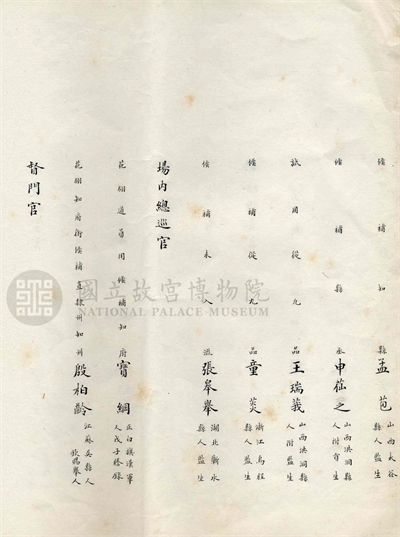 候補知縣孟苞山西太谷縣人監生
候補縣丞申莅之山西洪洞縣人附貢生
試用從九品王瑞莪山西洪洞縣人附監生
候補從九品童英浙江烏程縣人監生
候補未入流張皋舉湖北蘄水縣人監生
場內總巡官
花翎道員用候補知府寶綱正白旗漢軍人戊子謄錄
花翎知府銜候補直隸州知州殷柏齡江蘇吳縣人欽賜舉人
督門官
國立故宮博物院
NATIONAL PALACE MUSEUM